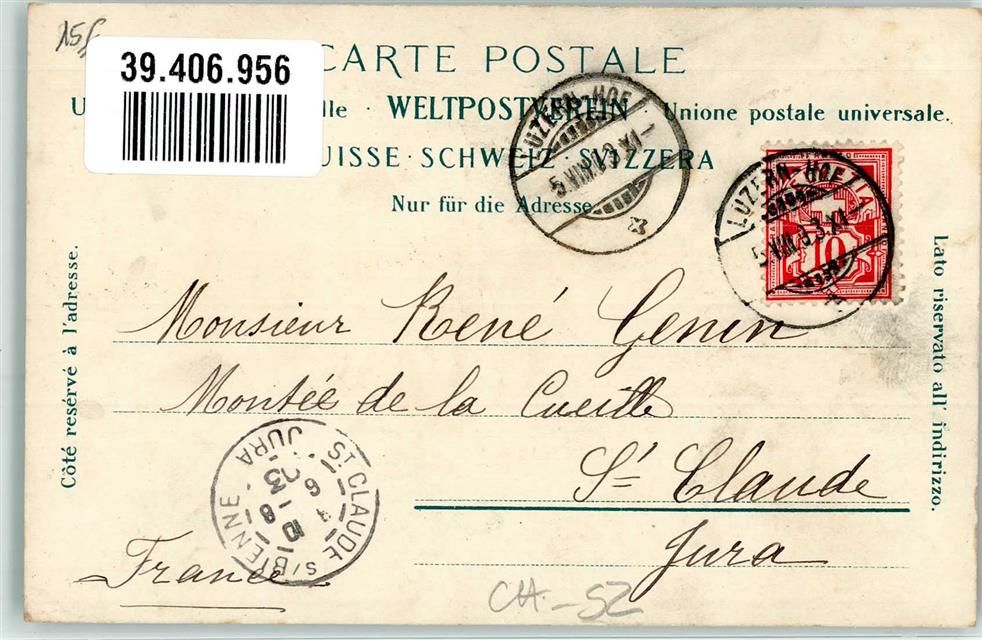 15f
39.406.956
CARTE POSTALE
U lle · WELTPOSTVEREIN · Unione postale universale.
UISSE · SCHWEIZ · SVIZZERA
Nur für die Adresse
LUZERN-HOF
5.VIII.03.XI-
LUZERN-HOF
5.VIII.03.XI-
10
Côté reservé à l'adresse.
Lato riservato all' indirizzo.
Monsieur René Genin
Montée de la Cueille
St Claude
Jura
France
ST CLAUDE S/BIENNE
JURA
CH.-SZ